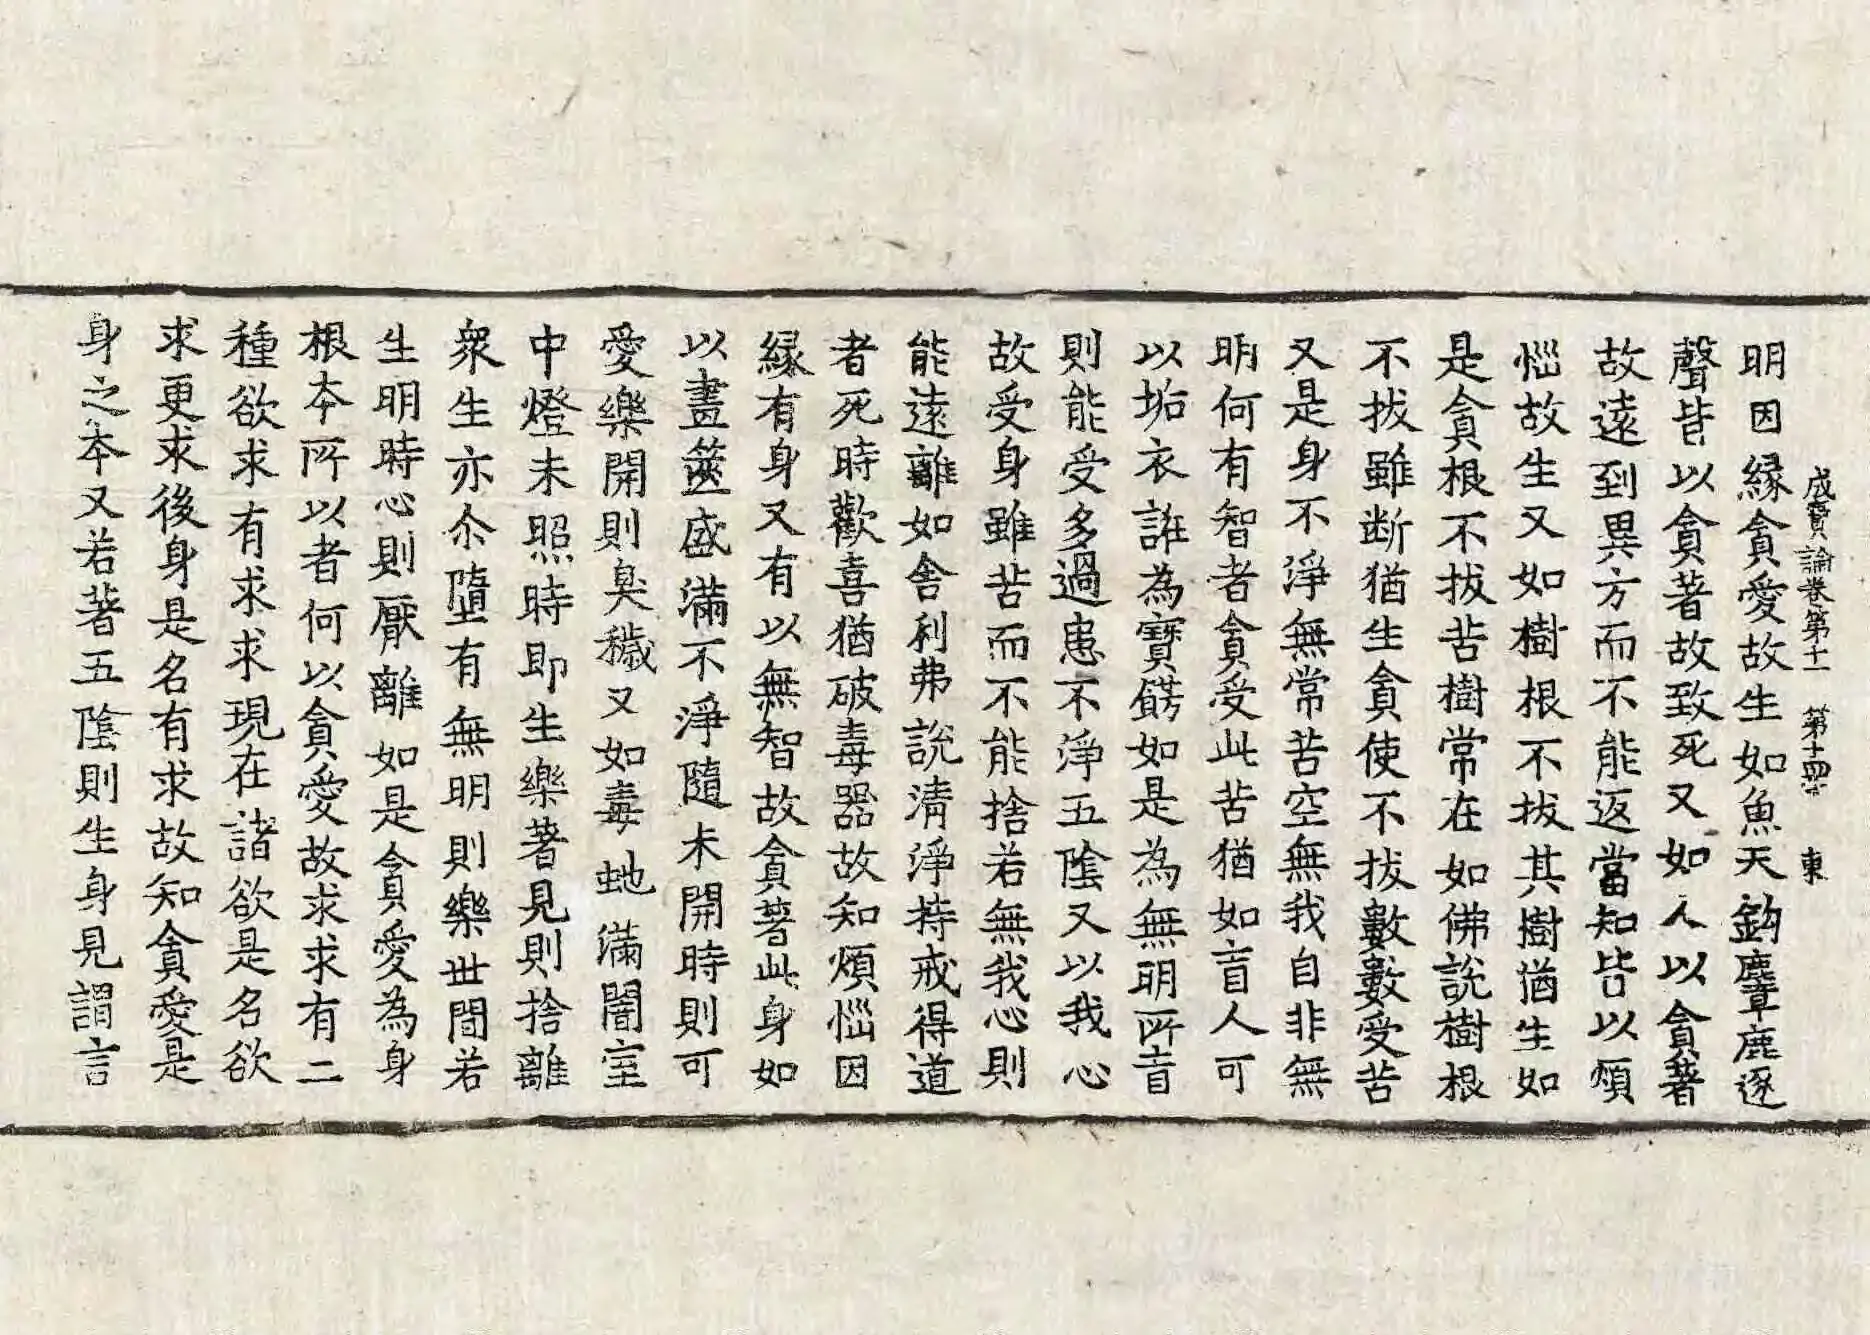 成實論卷第十一 第十四張 東
明因緣貪愛故生如魚天鈎麞鹿逐
聲皆以貪著故致死又如人以貪著
故遠到異方而不能返當知皆以煩
惱故生又如樹根不拔其樹猶生如
是貪根不拔苦樹常在如佛說樹根
不拔雖断猶生貪使不拔數數受苦
又是身不淨無常苦空無我自非無
明何有智者貪受此苦猶如盲人可
以垢衣誑為寶餝如是為無明所盲
則能受多過患不淨五陰又以我心
故受身雖苦而不能捨若無我心則
能遠離如舍利弗說清淨持戒得道
者死時歡喜猶破毒器故知煩惱因
緣有身又有以無智故貪著此身如
以畫篋盛滿不淨隨未開時則可
愛樂開則臭穢又如毒虵滿闇室
中燈未照時即生樂著見則捨離
衆生亦尒墮有無明則樂世間若
生明時心則厭離如是貪愛為身
根夲所以者何以貪愛故求求有二
種欲求有求求現在諸欲是名欲
求更求後身是名有求故知貪愛是
身之夲又若著五陰則生身見謂言